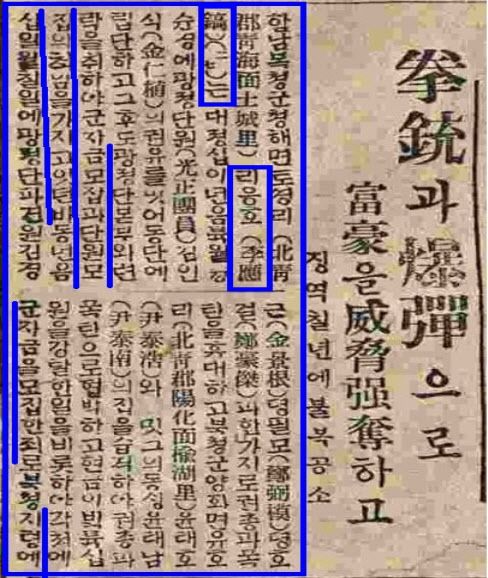 拳銃과爆彈으로
富豪을威脅强奪하고
징역칠년에불복공소
함남북청군청해면토성리 (北靑
郡靑海面土城里) 리응호 (李應
鎬) 는 대정십이년음륙월
순경에광정단원 (光正團員) 김인
식 (金仁植)의권유를밧어동단에
립단하고그후도광정단본부와련
락을취하야군자금모집과단원모
집의책임을가지고잇던바동년음
십일월칠일에광정단파견원김경
근 (金景根) 뎡필모 (鄭弼模) 뎡호
걸 (鄭豪傑)과한가지로권총과폭
탄을휴대하고북청군양화면유호
리 (北靑郡陽化面楡湖里) 윤태호
(尹泰浩)와 밋그의동싱윤태남
(尹泰南)의집을습격하야권총과
폭탄으로협박하고현금이백륙십
원을강탈한일을비롯하야각처에
군자금을모집한죄로북청지텽에